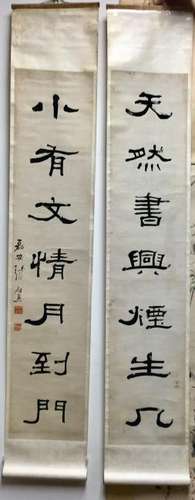 天然書興煙生几
小有文情月到門